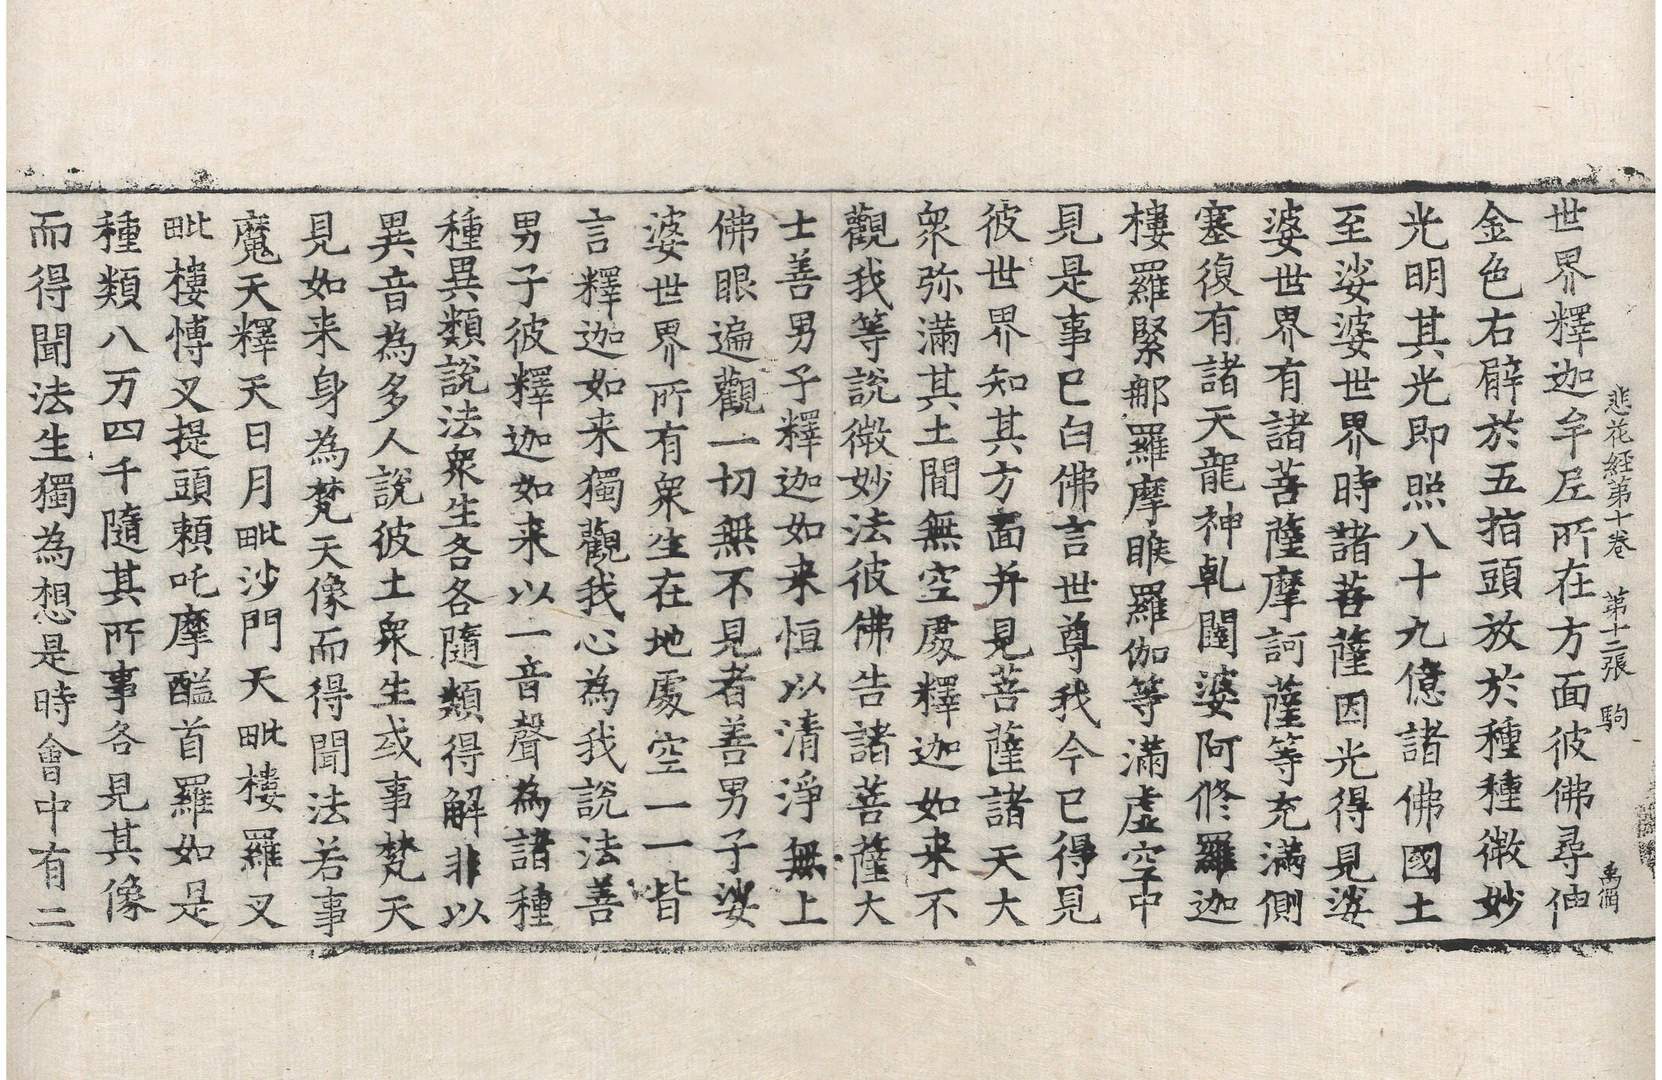 悲花経第十卷 第十三張 駒
世界釋迦牟尼所在方面彼佛尋伸
金色右臂於五指頭放於種種微妙
光明其光即照八十九億諸佛國土
至娑婆世界時諸菩薩因光得見娑
婆世界有諸菩薩摩訶薩等充滿側
塞復有諸天龍神乹闥婆阿脩羅迦
樓羅緊那羅摩睺羅伽等滿虛空中
見是事已白佛言世尊我今已得見
彼世界知其方面并見菩薩諸天大
衆弥滿其土間無空處釋迦如来不
觀我等說微妙法彼佛告諸菩薩大
士善男子釋迦如来恒以清淨無上
佛眼遍觀一切無不見者善男子娑
婆世界所有衆生在地處空一一皆
言釋迦如来獨觀我心為我說法善
男子彼釋迦如来以一音聲為諸種
種異類說法衆生各各隨類得解非以
異音為多人說彼土衆生或事梵天
見如来身為梵天像而得聞法若事
魔天釋天日月毗沙門天毗樓羅叉
毗樓博叉提頭頼吒摩醯首羅如是
種類八万四千隨其所事各見其像
而得聞法生獨為想是時會中有二